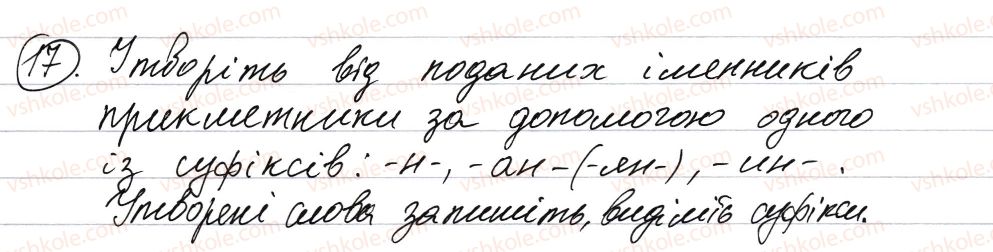 17. Утворіть від поданих іменників
прикметники за допомогою одного
із суфіксів: -н-, -ан-(-ян-), -ин-.
Утворені слова запишіть, виділіть суфікси.